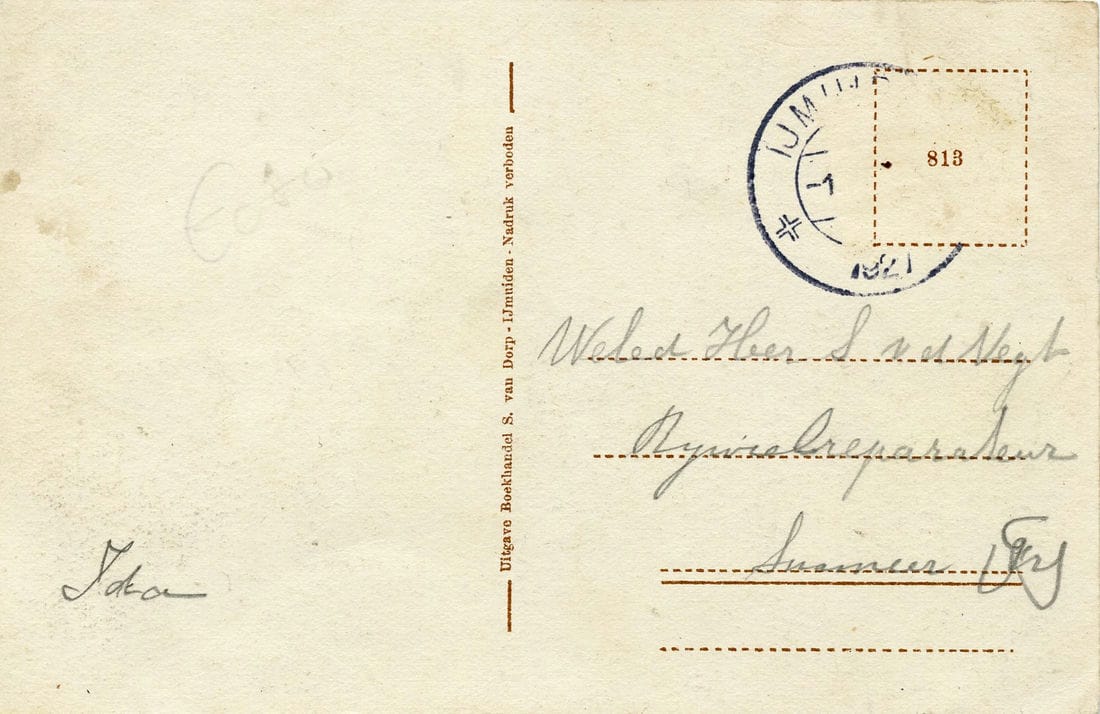 Uitgave Boekhandel S. van Dorp - IJmuiden - Nadruk verboden
IJMUID
1
1921
813
Weled Heer S v d Vegt
Rywielreparateur
Suameer
Ida